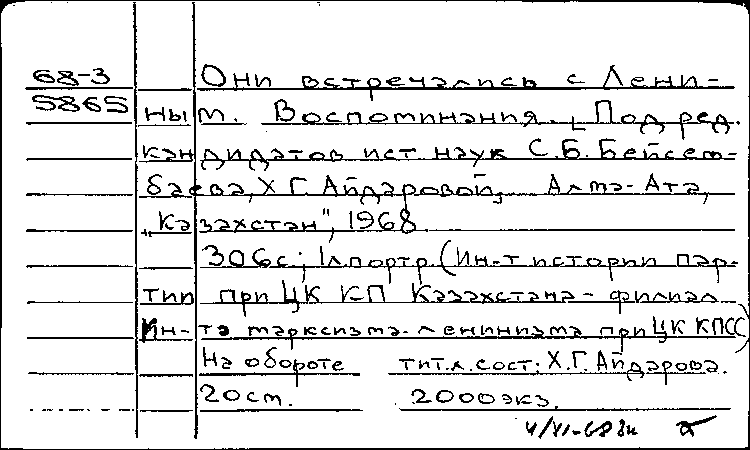 68-3 Они встречались с Лени-
5865 ным. Воспоминания. [Под ред.
кандидатов ист наук С.Б. Бейсем-
баева, Х Г. Айдаровой, Алма-Ата,
„Казахстан", 1968
306с; 1л портр (Ин-т истории пар-
тии при ЦК КП Казахстана - филиал
Ин-та марксизма-ленинизма при ЦК КПСС)
На обороте тит.л. сост: Х.Г. Айдарова.
20см. 2000экз.
4/VI-68